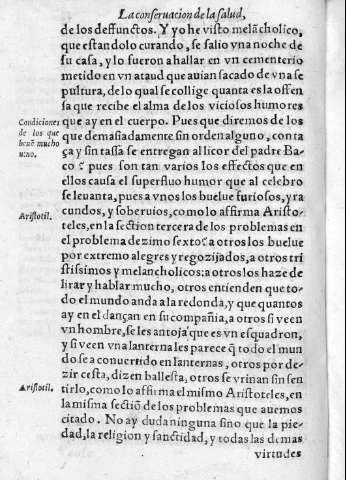 La conseruacion de la salud,
de los deffunctos. Y yo he visto melãcholico,
que estandolo curando, se salio vna noche de
su casa, y lo fueron a hallar en vn cementerio
metido en vn ataud que auian sacado de vna se
pultura, de lo qual se collige quanta es la offen
sa que recibe el alma de los viciosos humores
que ay en el cuerpo. Pues que diremos de los
que demasiadamente sin orden alguno, con ta
ça y sin tassa se entregan al licor del padre Ba
co? pues son tan varios los effectos que en
ellos causa el superfluo humor que al celebro
se leuanta, pues a vnos los buelue furiosos, y ra
cundos, y soberuios, como lo affirma Aristo-
teles, en la section tercera de los problemas en
el problema dezimo sexto? a otros los buelue
por extremo alegres y regozijados, a otros tri
stissimos y melancholicos: a otros los haze de
lirar y hablar mucho, otros entienden que to-
do el mundo anda a la redonda, y que quantos
ay en el dançan en su compañia, a otros si veen
vn hombre, se les antoja que es vn esquadron,
y si veen vna lanterna les parece q̃ todo el mun
do se a conuertido en lanternas, otros por de-
zir cesta, dizen ballesta, otros se vrinan sin sen
tirlo, como lo affirma el mismo Aristoteles, en
la misma sectiõ de los problemas que auemos
citado. No ay duda ninguna sino que la pie-
dad, la religion y sanctidad, y todas las demas
virtudes
Condiciones
de los que
beuẽ mucho
uino.
Aristotil.
Aristotil.